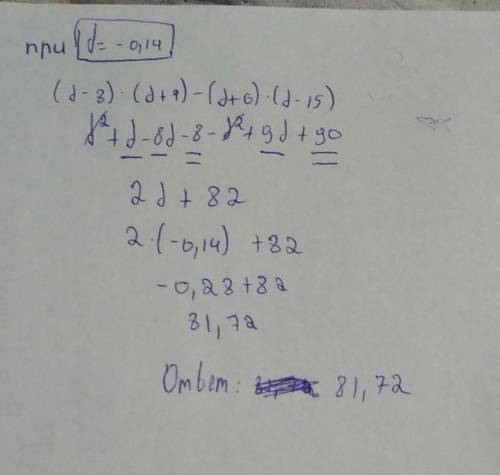 при d = -0,14
(d-8)·(d+1)-(d+6)·(d-15)
d²+d-8d-8-d²+9d+90
2d+82
2·(-0,14)+82
-0,28+82
81,72
Ответ: 81,72